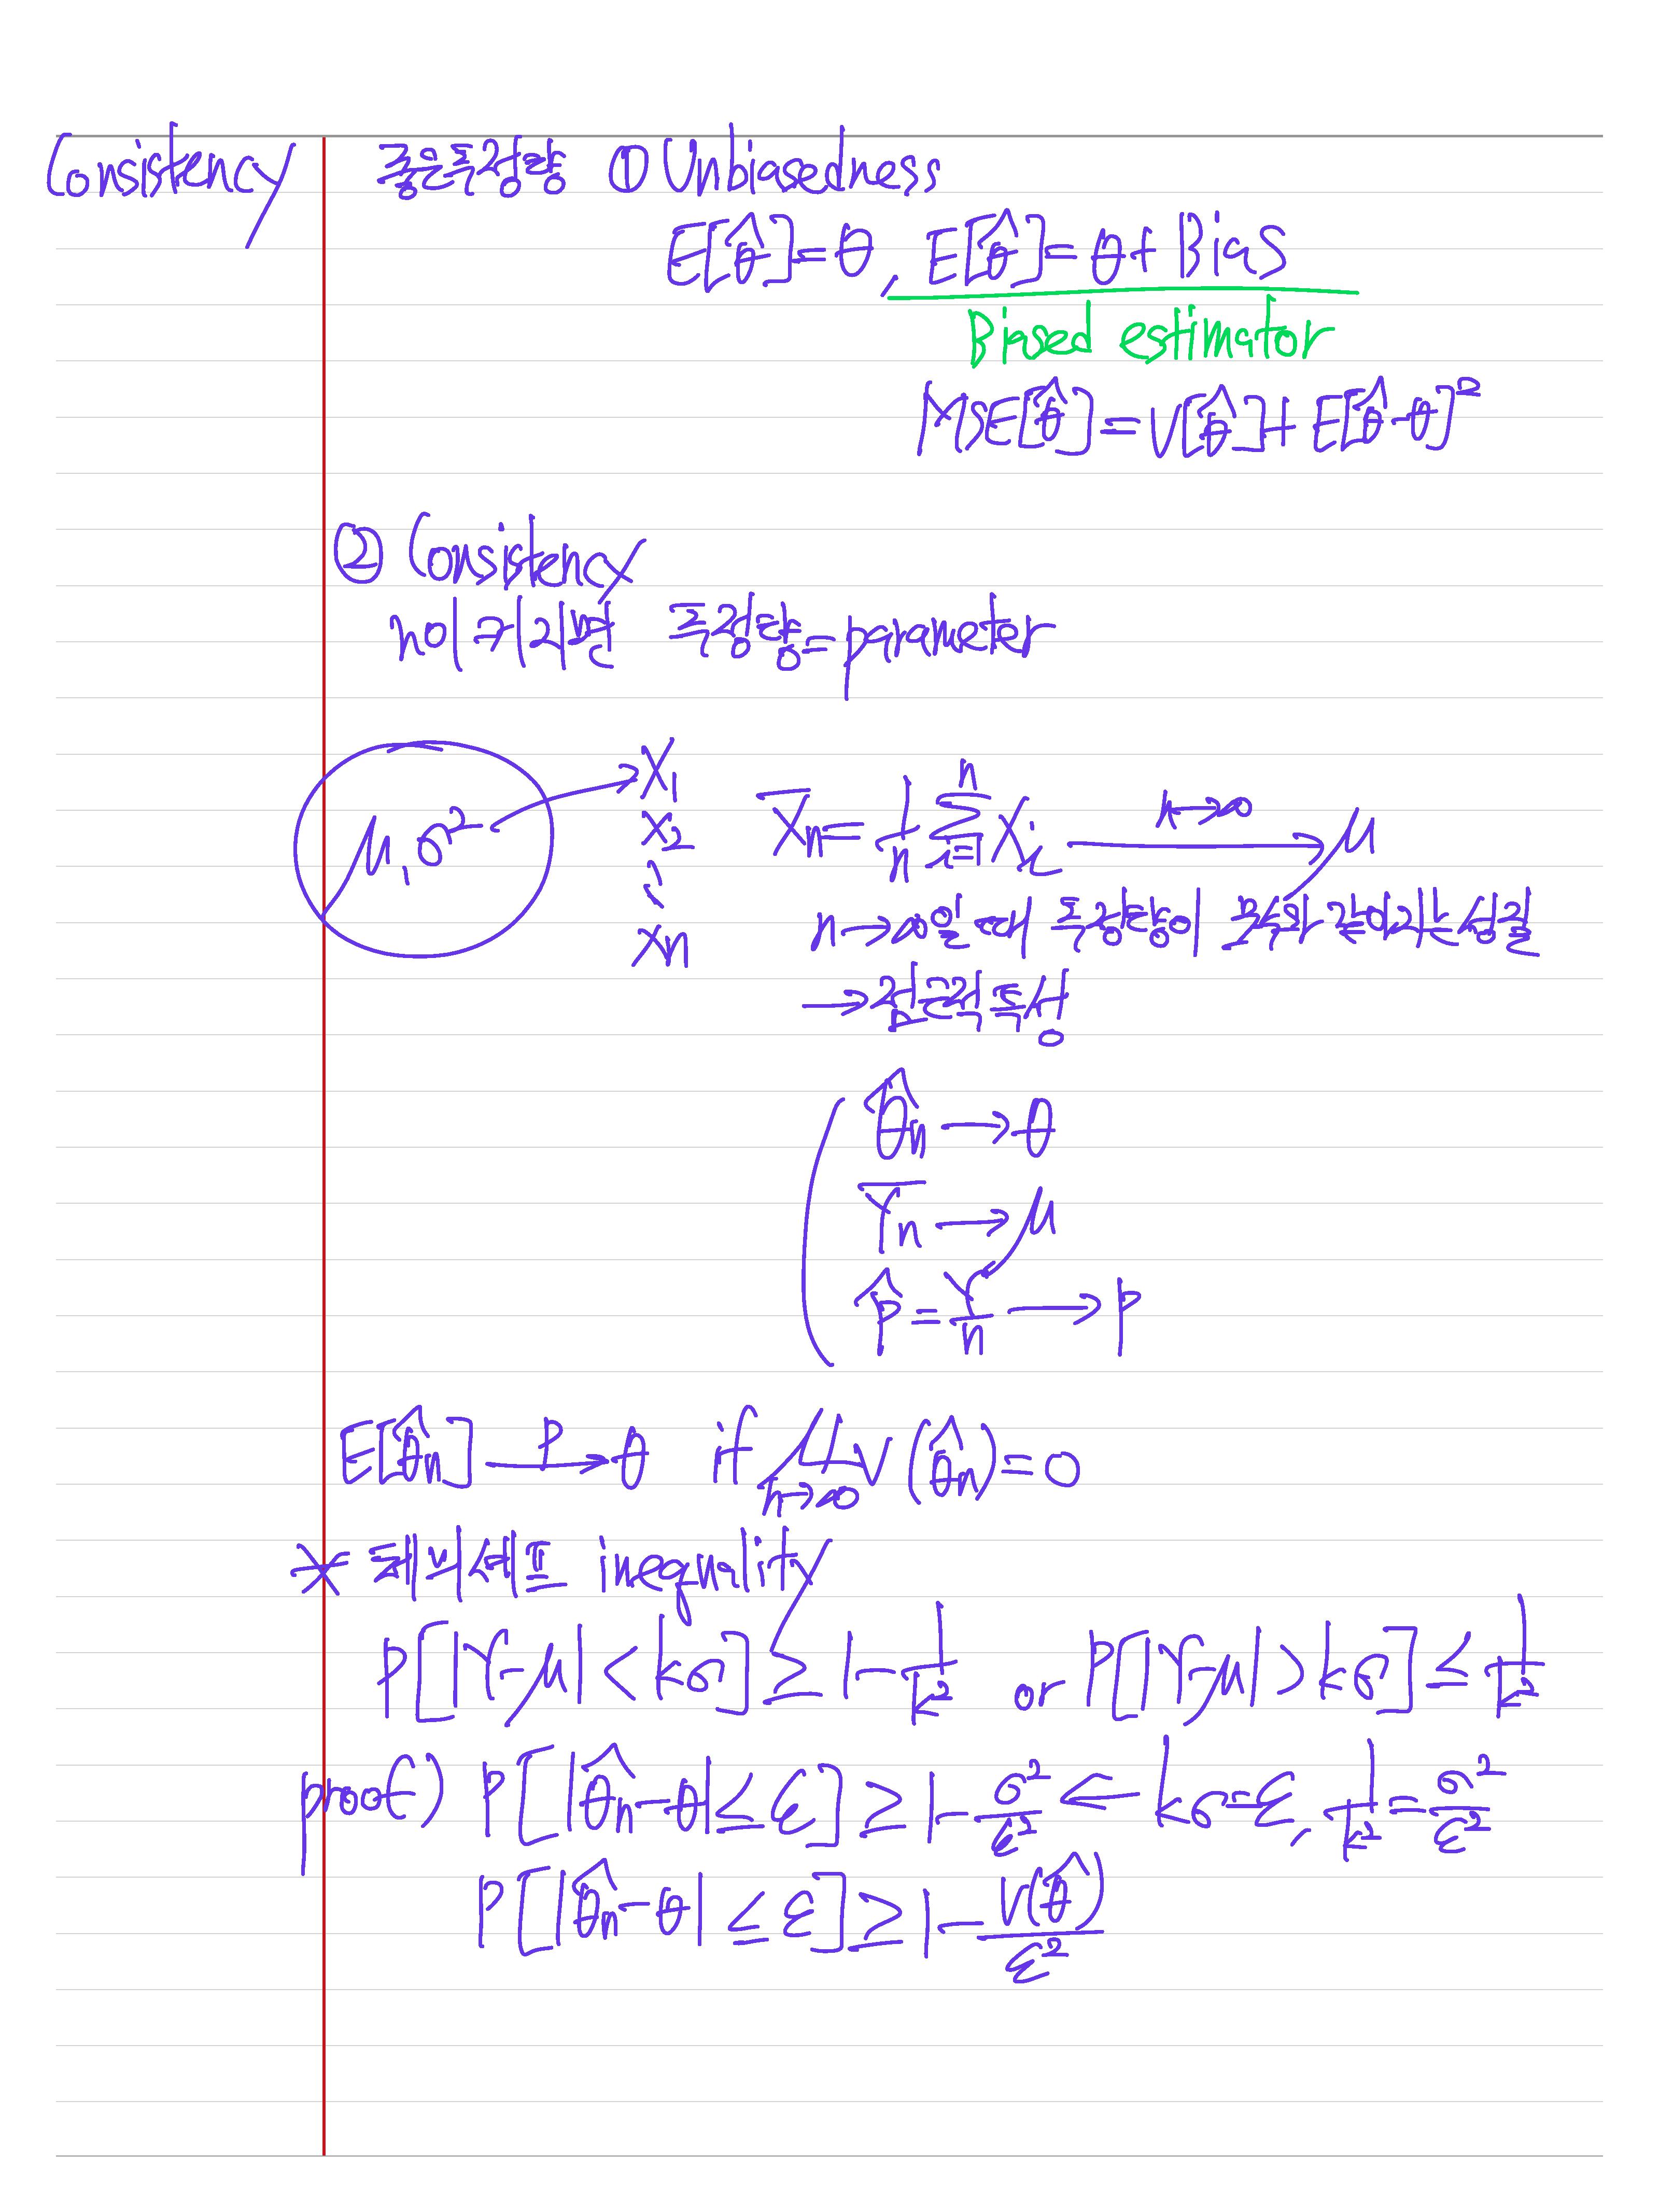 Consistency 좋은추정량 ① Unbiasedness
E[θ̂]=θ, E[θ̂]=θ+Bias
Biased estimator
MSE[θ̂]=V[θ̂]+E[θ̂-θ]²
② Consistency
n이 커지면 추정량=parameter
μ, σ² → X₁
X₂
⋮
Xn
X̄n = 1/n Σ_{i=1}^{n} Xᵢ → μ (n→∞)
n→∞일 때 추정량이 모수와 같아지는 성질
→점근적 특성
θ̂n → θ
Ȳn → μ
p̂ = Y/n → p
E[θ̂n] —P→ θ if lim_{n→∞} V(θ̂n)=0
* 체비셰프 inequality
P[|Y-μ|<kσ] ≥ 1-1/k² or P[|Y-μ|>kσ] ≤ 1/k²
proof) P[|θ̂n-θ|≤ε] ≥ 1-σ²/ε² ← kσ=ε, 1/k²=σ²/ε²
P[|θ̂n-θ|≤ε] ≥ 1-V(θ̂)/ε²